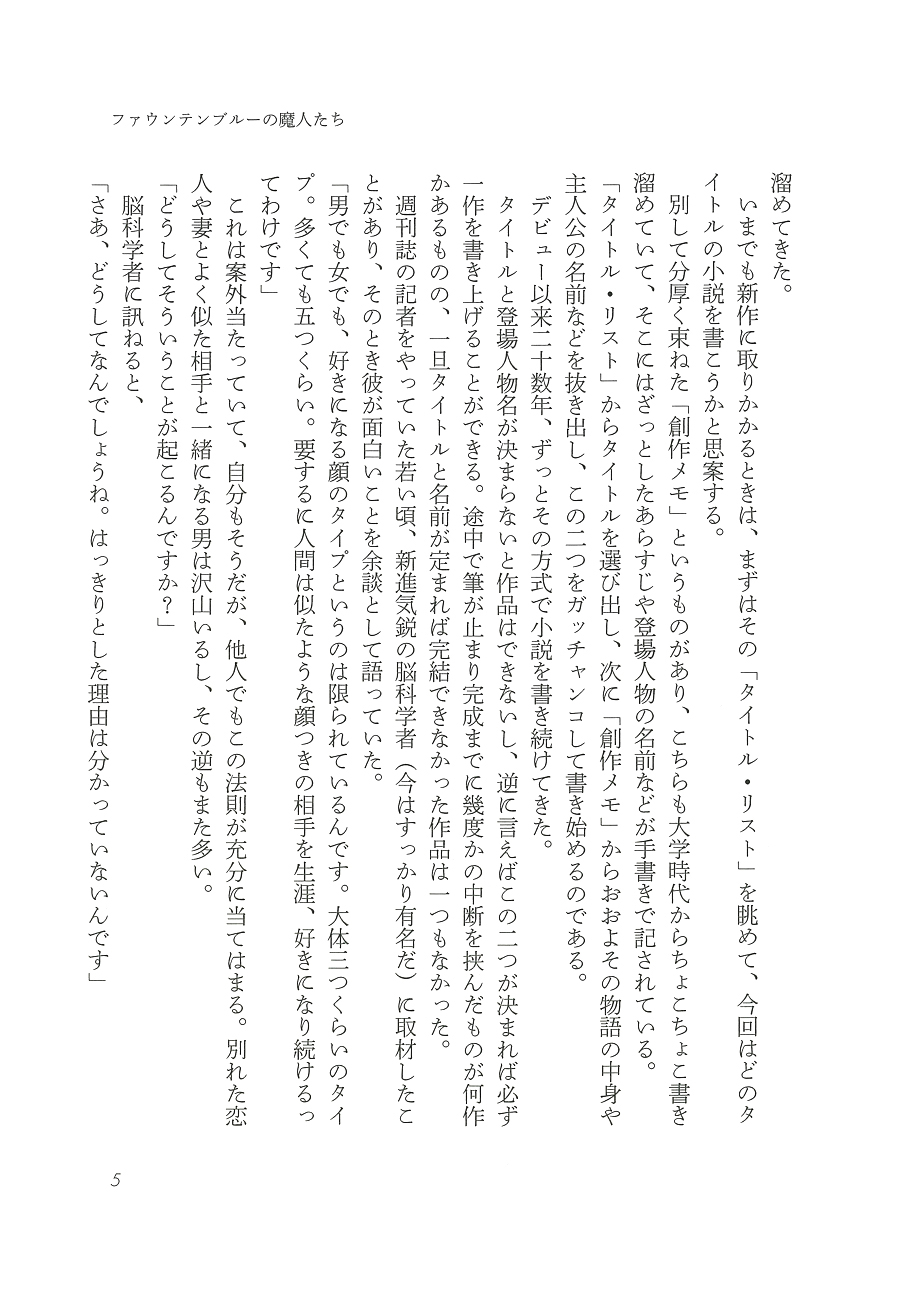 ファウンテンブルーの魔人たち
溜めてきた。
　いまでも新作に取りかかるときは、まずはその「タイトル・リスト」を眺めて、今回はどのタ
イトルの小説を書こうかと思案する。
　別して分厚く束ねた「創作メモ」というものがあり、こちらも大学時代からちょこちょこ書き
溜めていて、そこにはざっとしたあらすじや登場人物の名前などが手書きで記されている。
「タイトル・リスト」からタイトルを選び出し、次に「創作メモ」からおおよその物語の中身や
主人公の名前などを抜き出し、この二つをガッチャンコして書き始めるのである。
　デビュー以来二十数年、ずっとその方式で小説を書き続けてきた。
　タイトルと登場人物名が決まらないと作品はできないし、逆に言えばこの二つが決まれば必ず
一作を書き上げることができる。途中で筆が止まり完成までに幾度かの中断を挟んだものが何作
かあるものの、一旦タイトルと名前が定まれば完結できなかった作品は一つもなかった。
　週刊誌の記者をやっていた若い頃、新進気鋭の脳科学者（今はすっかり有名だ）に取材したこ
とがあり、そのとき彼が面白いことを余談として語っていた。
「男でも女でも、好きになる顔のタイプというのは限られているんです。大体三つくらいのタイ
プ。多くても五つくらい。要するに人間は似たような顔つきの相手を生涯、好きになり続けるっ
てわけです」
　これは案外当たっていて、自分もそうだが、他人でもこの法則が充分に当てはまる。別れた恋
人や妻とよく似た相手と一緒になる男は沢山いるし、その逆もまた多い。
「どうしてそういうことが起こるんですか？」
　脳科学者に訊ねると、
「さあ、どうしてなんでしょうね。はっきりとした理由は分かっていないんです」
5